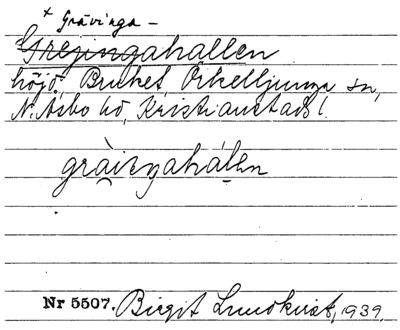 x Grävinga –
Grejingahallen
höjd, Buket, Örkelljunga sn,
N. Åsbo hd, Kristianstads l.
gràiŋahálen
Nr 5507. Birgit Lundkvist, 1939.